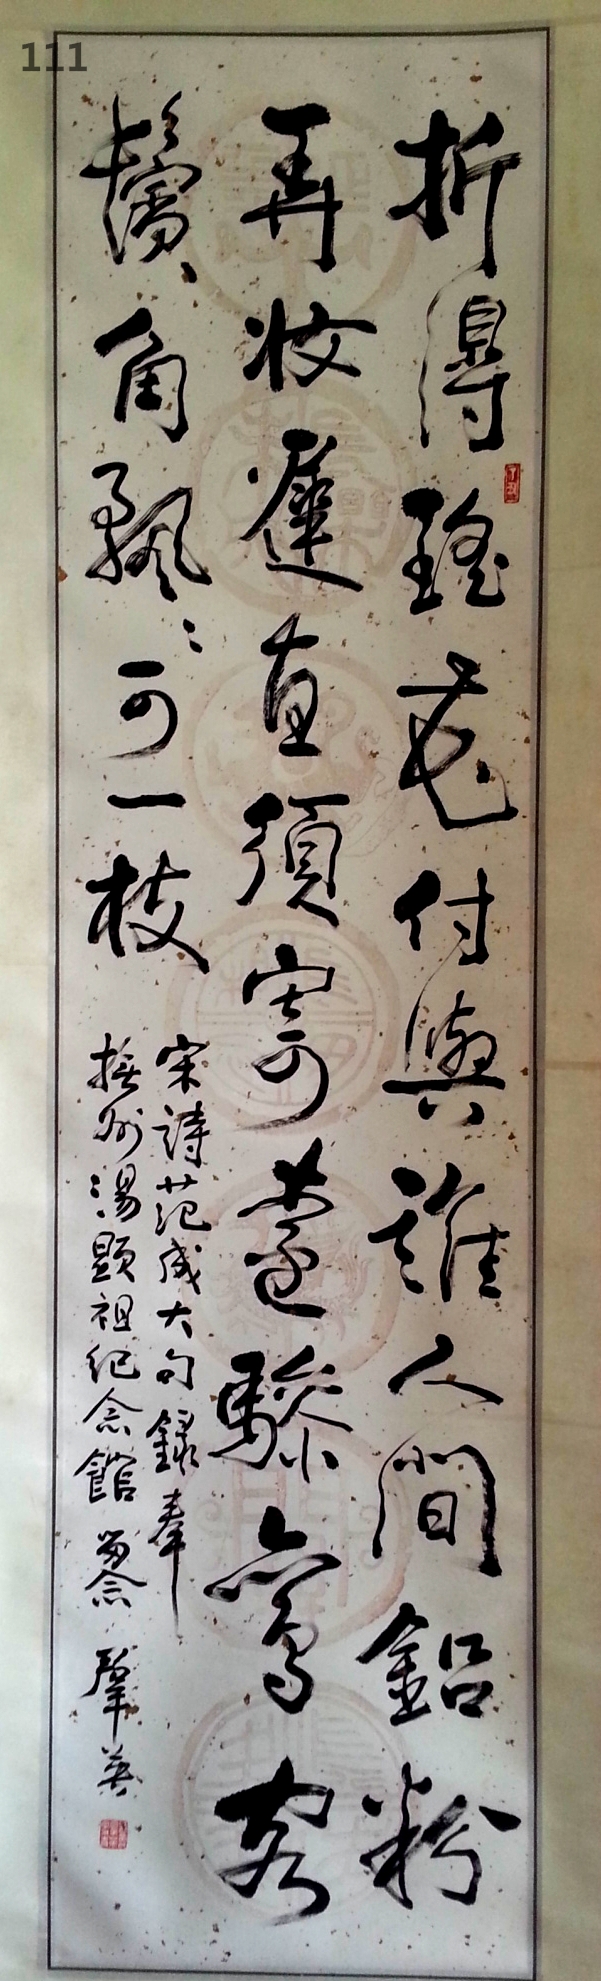 111
折得瑤花付與誰人間鉛粉
再妝遲直須寄与驂鸞客
鬢角飄飄可一枝
宋詩范成大句錄奉
撫州湯顯祖紀念館 留念 肇英